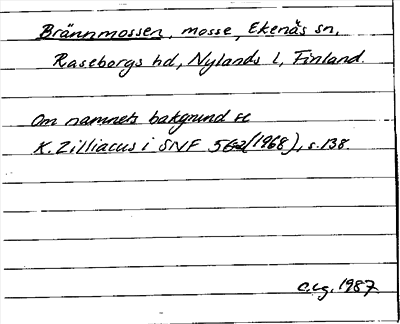 Brännmossen, mosse, Ekenäs sn,
Raseborgs hd, Nylands l, Finland.
Om namnets bakgrund se
K. Zilliacus i SNF 56 (1968), s. 138.
1987